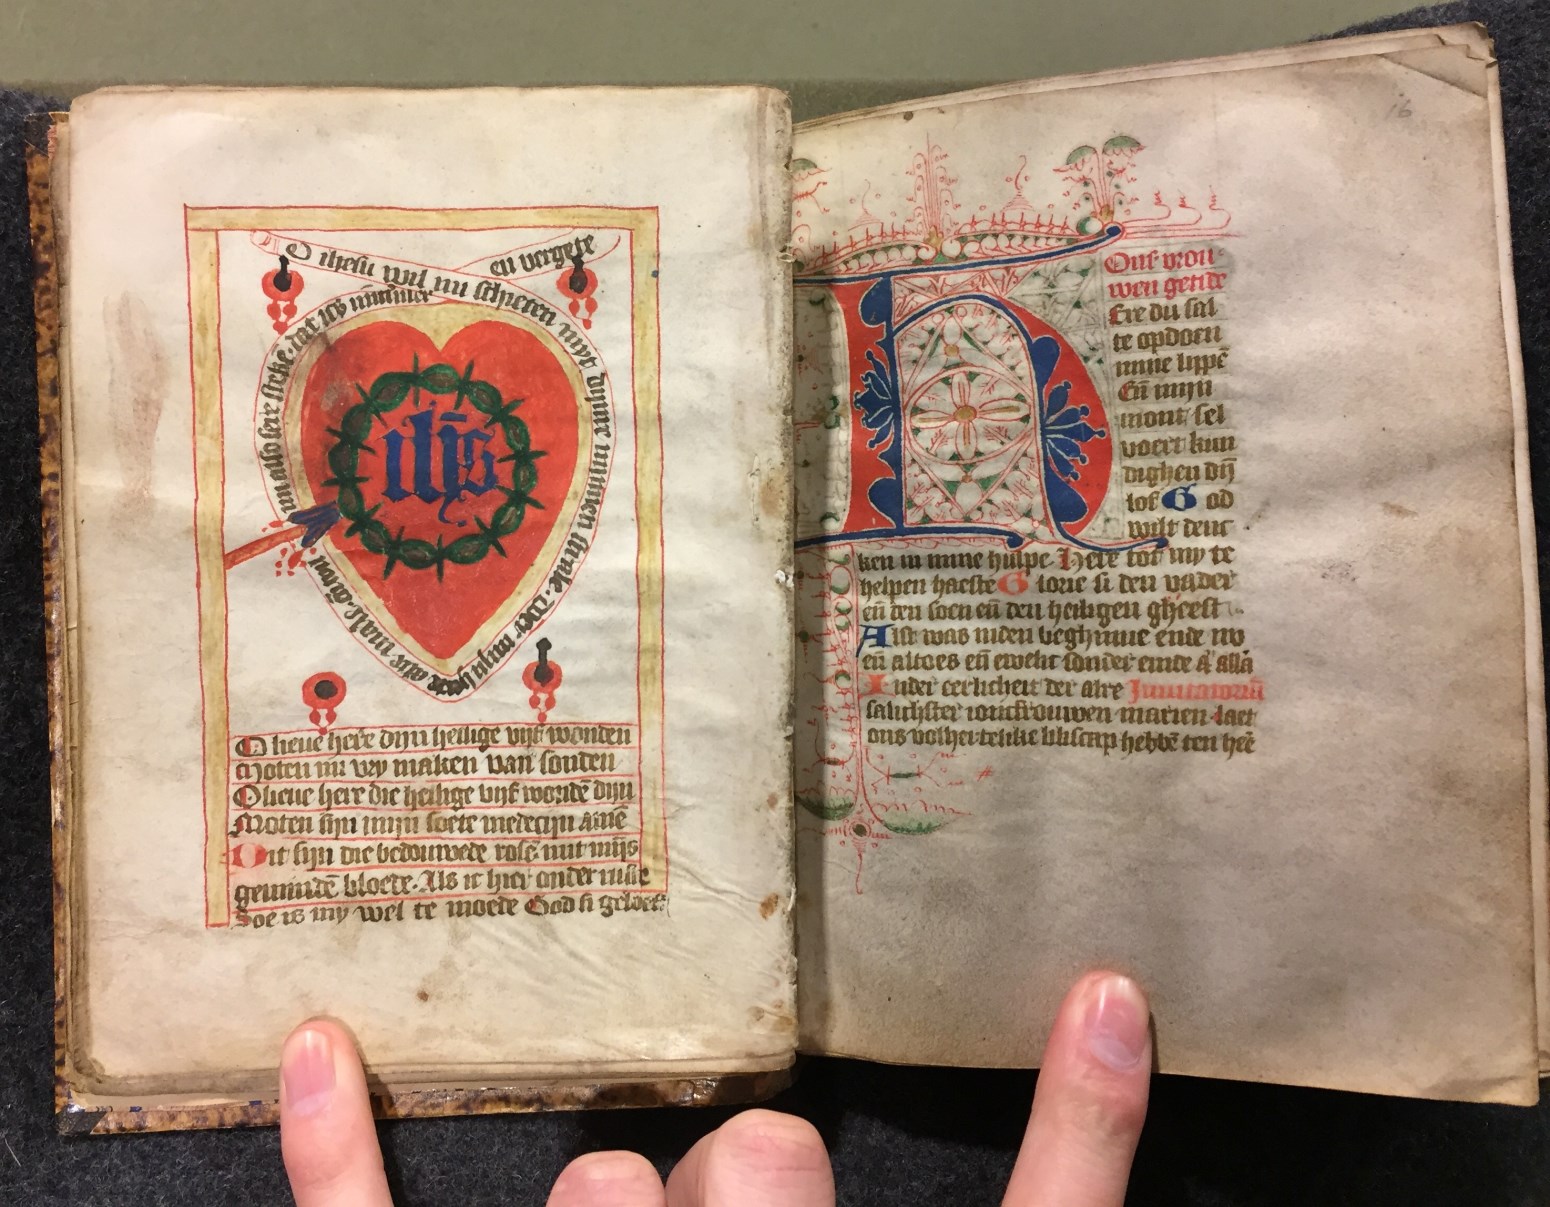 O ihesu wil nu schieten myt dijnre mynnen strale
Mijn herte altemale
en vergete
ihs
O lieue here dijn heilige vijf wonden
Moten mi vry maken van sonden
O lieue here die heilige vijf wonde dijn
Moten sijn mijn soete medecijn amē
Dit sijn die bedouwede rosē mit mijs
geminde bloede. Als ic hier onder rust
Soe is my wel te moede God si geloeft
16
Onser vrou
wen getide
Ere du sal
te opdoen
mine lippē
En̄ mijn
mont sel
voert kun
dighen dij̄
lof God
wilt denc
ken in mine hulpe Here tot my te
helpen haeste Glorie si den vader
en̄ den soen en̄ den heiligen gheest
Alst was inden beghinne ende nv
en̄ altoes en̄ ewelic sonder einde Alla
Inder eerlicheit der alre Inuitatoriū
salichster ioncfrouwen marien laet
ons volhertelike bliscap hebbē ten heē